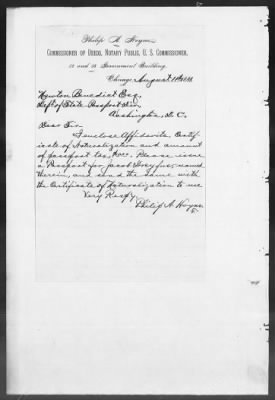 Philip A. Hoyne,
COMMISSIONER OF DEEDS, NOTARY PUBLIC, U. S. COMMISSIONER,
Government Building.
Chicago, August
Newton Benedict Esq.
Dept of State Passport Divn,
Washington, D. C.
Dear Sir:
I enclose Affidavits, Certifi-
cate of Naturalization and amount
of passport tax, Please issue
a Passport for Jacob Dreyfus, named
therein, and send the same with
the Certificate of Naturalization to me
Very Respy,
Philip A. Hoyne